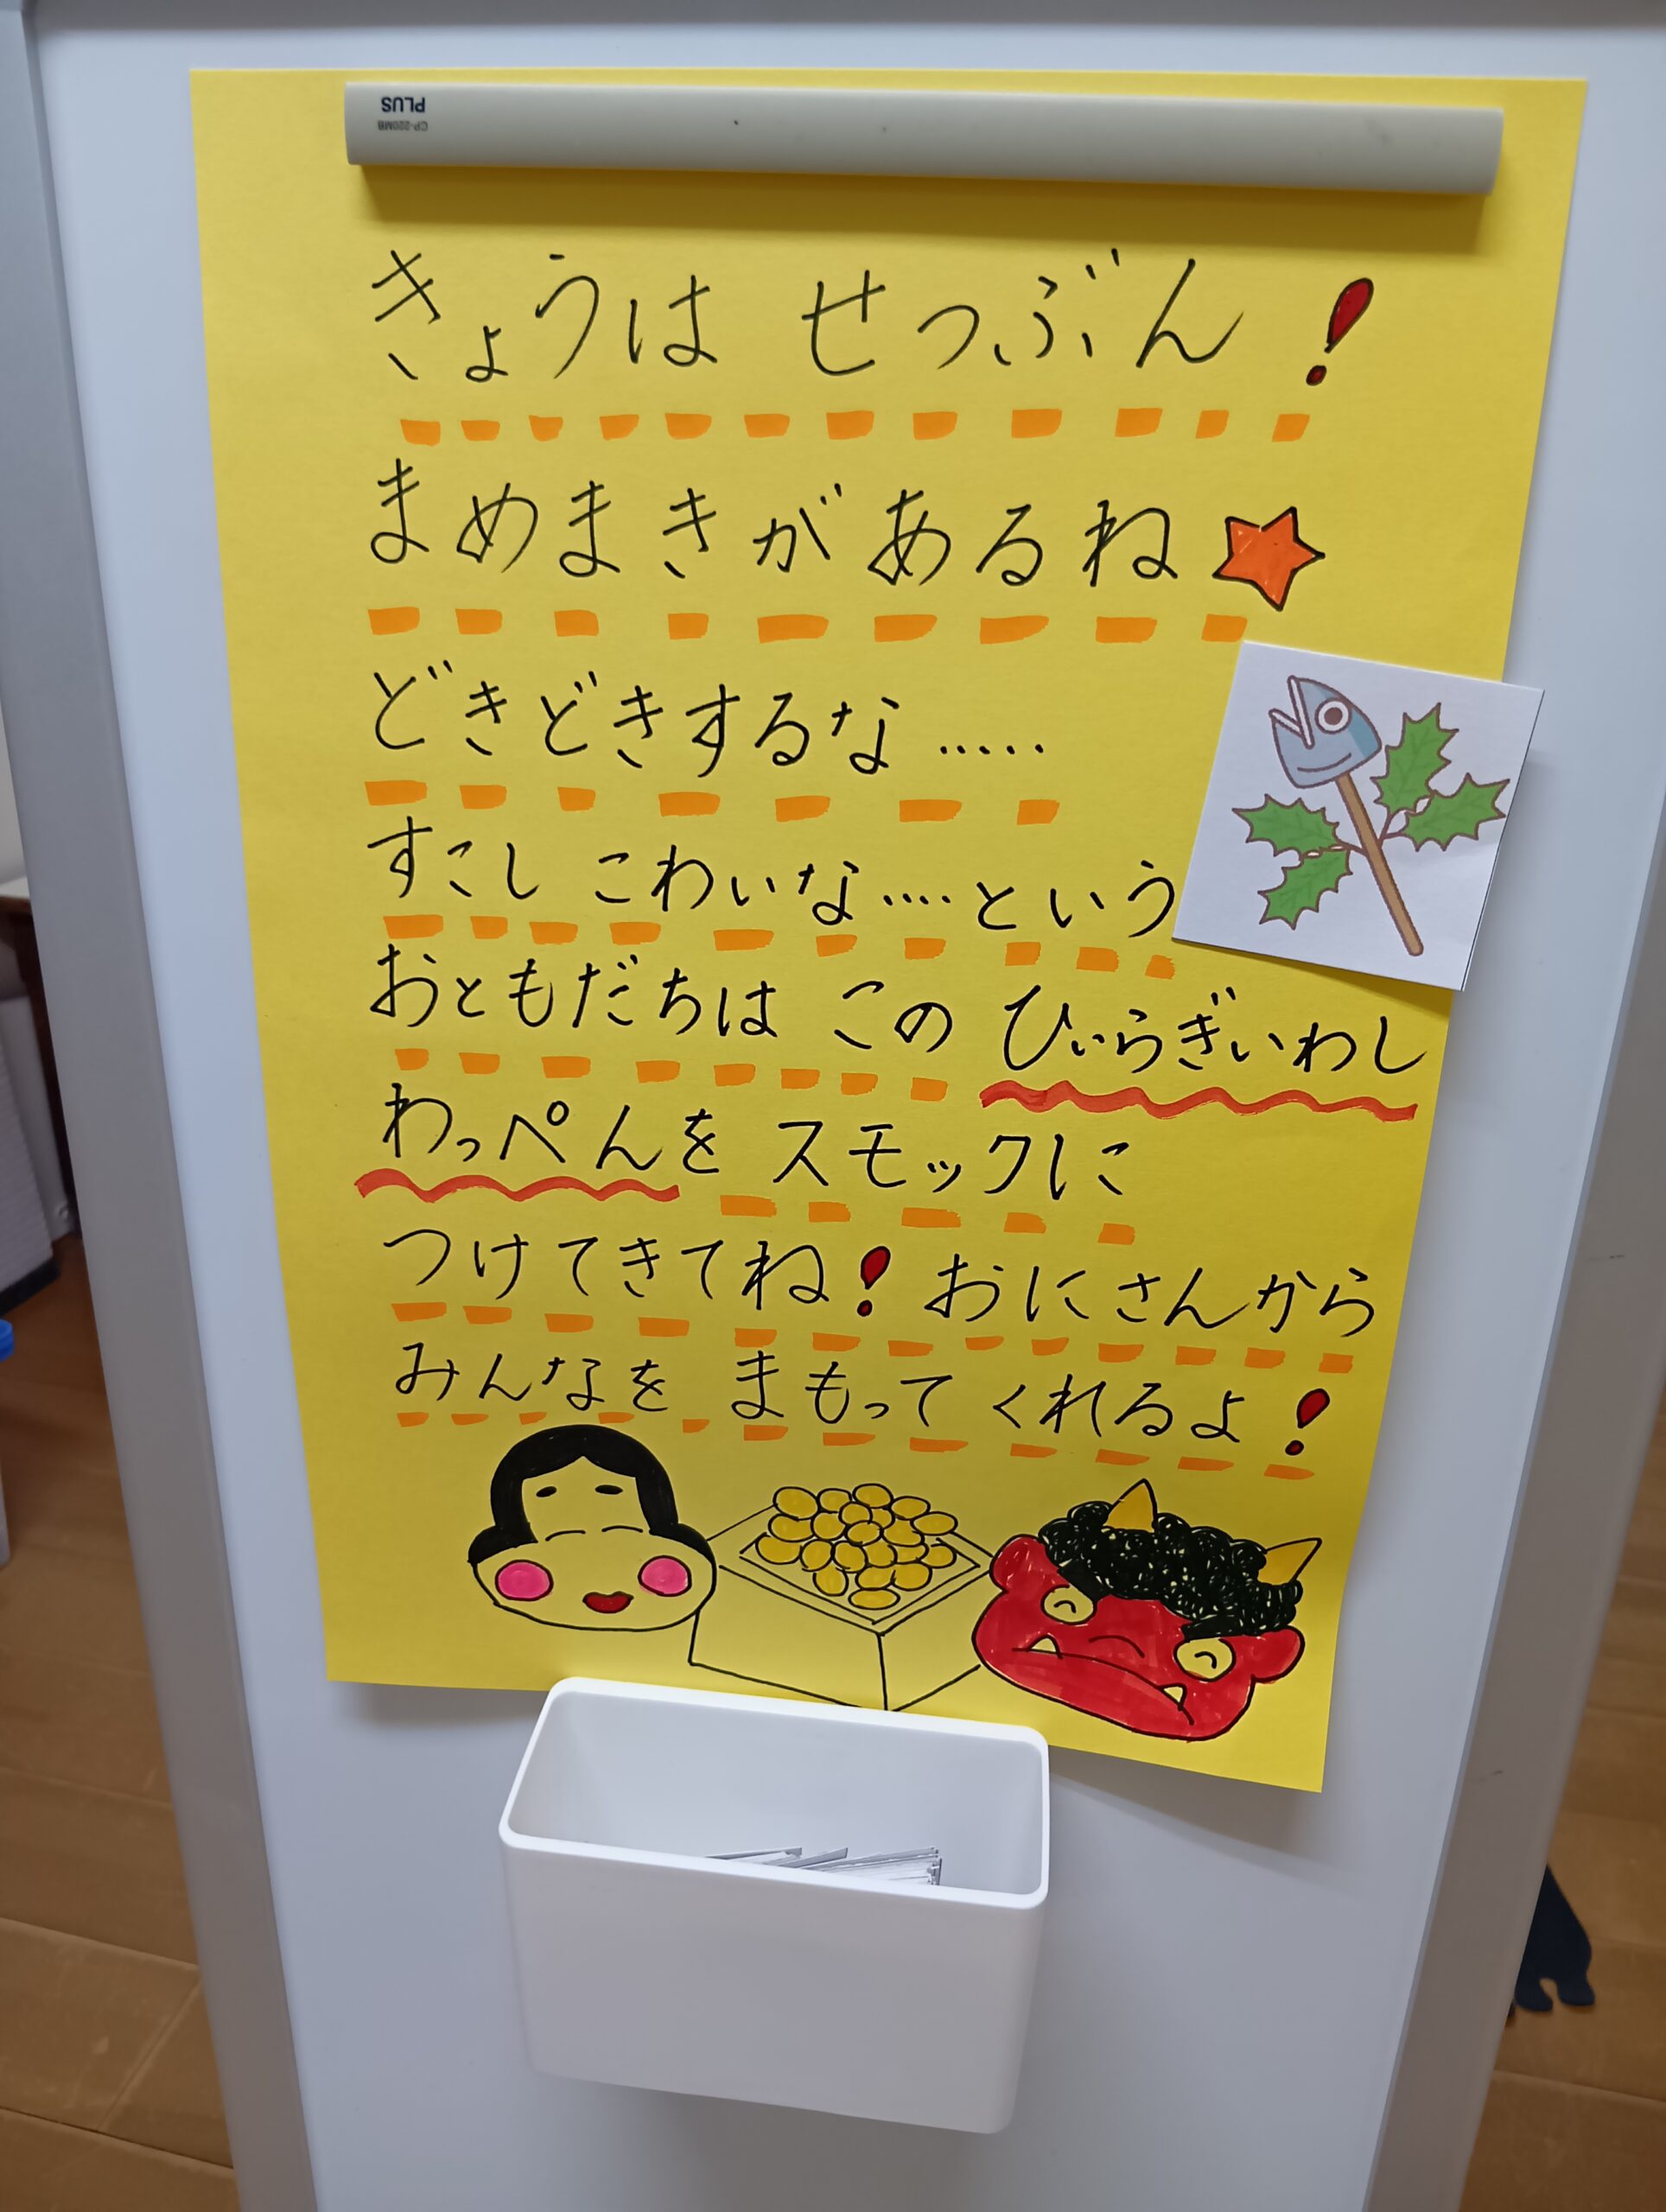 PLUS
CP-220MB
きょうは せつぶん!
まめまきがあるね☆
どきどきするな・・・・・
すこし こわいな・・・・という
おともだちは この ひいらぎいわし
わっぺんを スモックに
つけてきてね! おにさんから
みんなを まもって くれるよ!